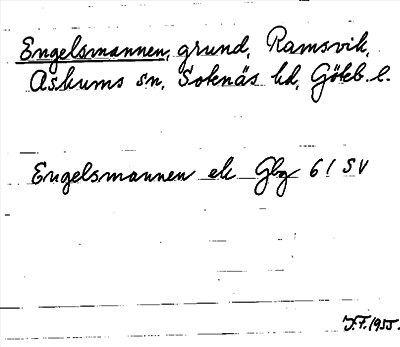 Engelsmannen, grund, Ramsvik,
Askums sn, Soknäs hd, Göteb. l.
Engelsmannen ek Gbg 61 SV
J.F. 1955.